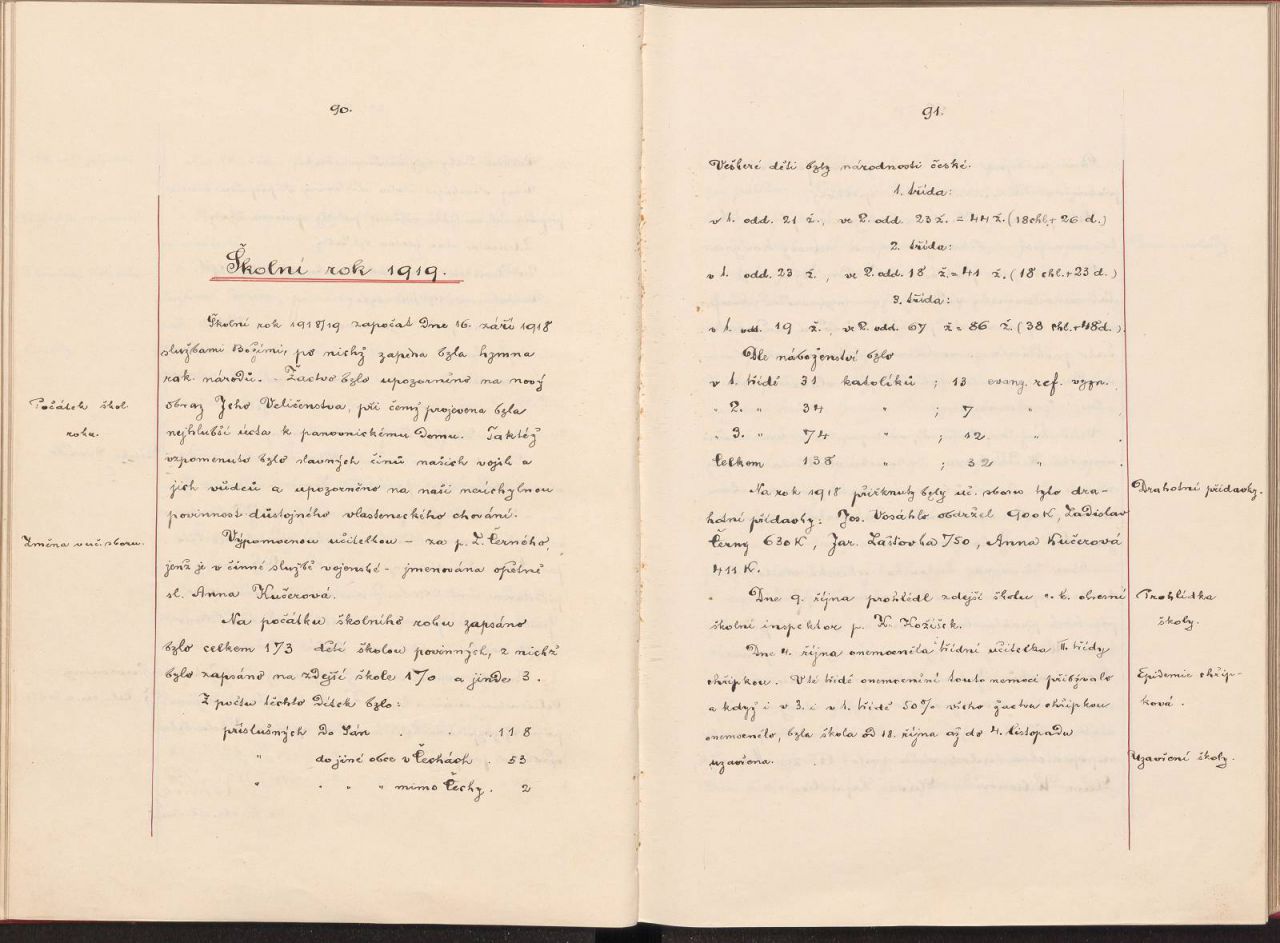 90.
Školní rok 1919.
Školní rok 1918/19 započat dne 16. září 1918
službami Božími, po nichž zapěna byla hymna
rak. národů. - Žactvo bylo upozorněno na nový
obraz Jeho Veličenstva, při čemž projevena byla
Počátek škol.
roku.
nejhlubší úcta k panovnickému domu. Taktéž
vzpomenuto bylo slavných činů našich vojsk a
jich vůdců a upozorněno na naši neúchylnou
povinnost důstojného vlasteneckého chování.
Změna v uč. sboru.
Výpomocnou učitelkou - za p. L. Černého,
jenž je v činné službě vojenské - jmenována opětně
sl. Anna Kučerová.
Na počátku školního roku zapsáno
bylo celkem 173 dětí školou povinných, z nichž
bylo zapsáno na zdejší škole 170 a jinde 3.
Z počtu těchto dítek bylo:
příslušných do Sán . . . 118
" do jiné obce v Čechách . 53
" " " " mimo Čechy . 2
91.
Veškeré děti byly národnosti české.
1. třída:
v 1. odd. 21 ž., ve 2. odd. 23 ž. = 44 ž. (18 chl. + 26 d.)
2. třída:
v 1. odd. 23 ž., ve 2. odd. 18 ž. = 41 ž. (18 chl. + 23 d.)
3. třída:
v 1. odd. 19 ž., ve 2. odd. 67 ž = 86 ž. (38 chl. + 48 d.)
Dle náboženství bylo
v 1. třídě 31 katolíků ; 13 evang. ref. vyzn.
" 2. " 34 " ; 7 " .
" 3. " 74 " ; 12 " .
Celkem 138 " ; 32 " .
Na rok 1918 přiřknuty byly uč. sboru tyto dra-
Drahotní přídavky.
hotní přídavky: Jos. Vosáhlo obdržel 900 K, Ladislav
Černý 630 K, Jar. Laštovka 750, Anna Kučerová
411 K.
Dne 9. října prohlédl zdejší školu c. k. okresní
školní inspektor p. K. Kožíšek.
Prohlídka
školy.
Dne 4. října onemocněla třídní učitelka II. třídy
chřipkou. V té třídě onemocnění touto nemocí přibývalo
a když i v 3. i v 1. třídě 50% všeho žactva chřipkou
Epidemie chřip-
ková.
onemocnělo, byla škola od 18. října až do 4. listopadu
uzavřena.
Uzavření školy.